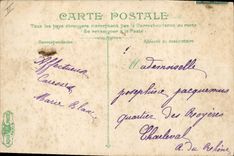 CARTE POSTALE
Tous les pays étrangers n'acceptent pas la Correspondance au recto
Se renseigner à la Poste
Correspondance
Adresse du destinataire
Affectueuses
Caresses
Marie Blanc
Mademoiselle
Joséphine Jacquemus
quartier des Broyères
Charleval
B. du Rhône